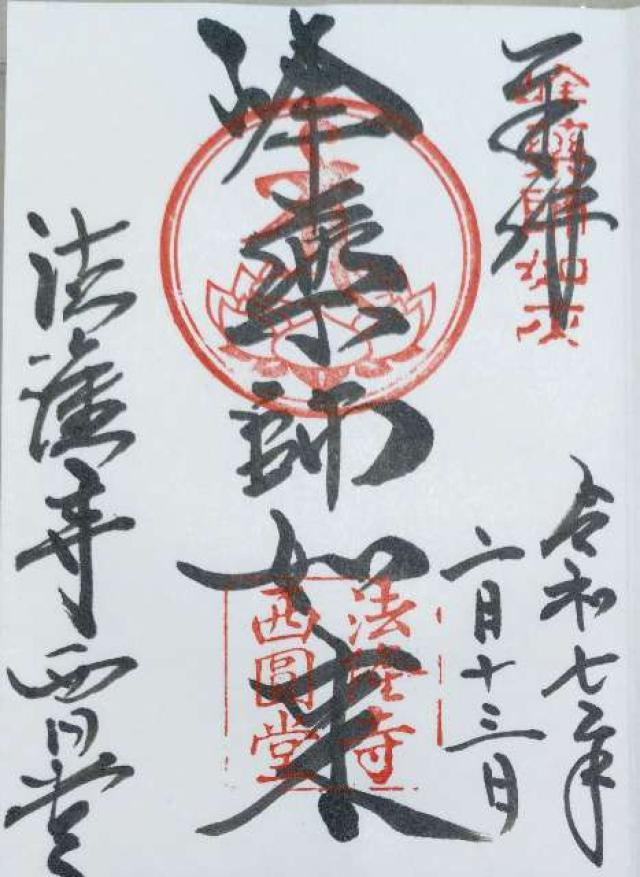 奉拝
峯薬師如来
令和七年
二月十三日
峰薬師如来
法隆寺
西圓堂
法隆寺西円堂